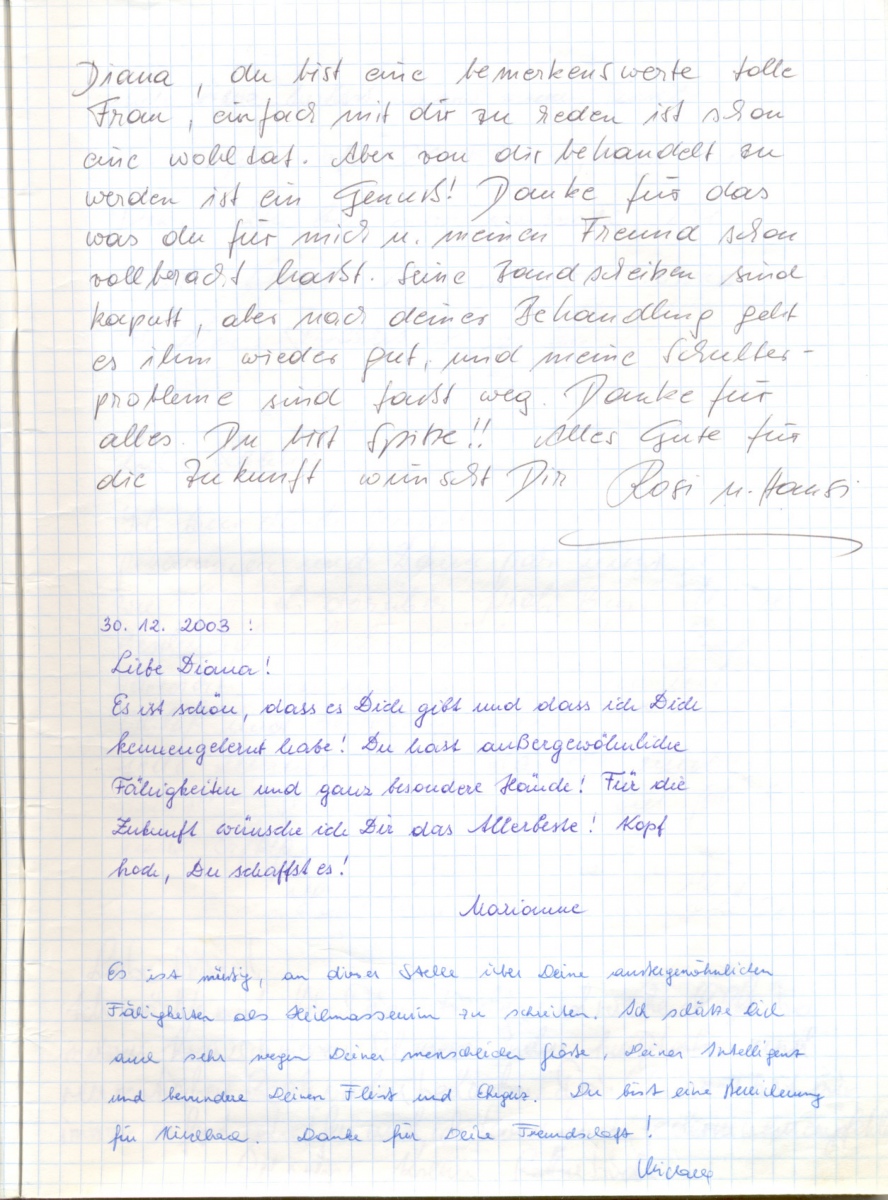 Diana, du bist eine bemerkenswerte tolle
Frau, einfach mit dir zu reden ist schon
eine wohltat. Aber von dir behandelt zu
werden ist ein Genuß! Danke für das
was du für mich u. meinen Freund schon
vollbracht hast. Seine Bandscheiben sind
kaputt, aber nach deiner Behandlung geht
es ihm wieder gut, und meine Schulter-
probleme sind fast weg. Danke für
alles. Du bist Spitze!! Alles Gute für
die Zukunft wünscht Dir Rosi u. Hansi
30. 12. 2003 :
Liebe Diana!
Es ist schön, dass es Dich gibt und dass ich Dich
kennengelernt habe! Du hast außergewöhnliche
Fähigkeiten und ganz besondere Hände! Für die
Zukunft wünsche ich Dir das Allerbeste! Kopf
hoch, Du schaffst es!
Marianne
Es ist müßig, an dieser Stelle über Deine außergewöhnlichen
Fähigkeiten als Heilmasseurin zu schreiben. Ich schätze Dich
auch sehr wegen Deiner menschlichen Größe, Deiner Intelligenz
und bewundere Deinen Fleiß und Ehrgeiz. Du bist eine Bereicherung
für. Danke für Deine Freundschaft!